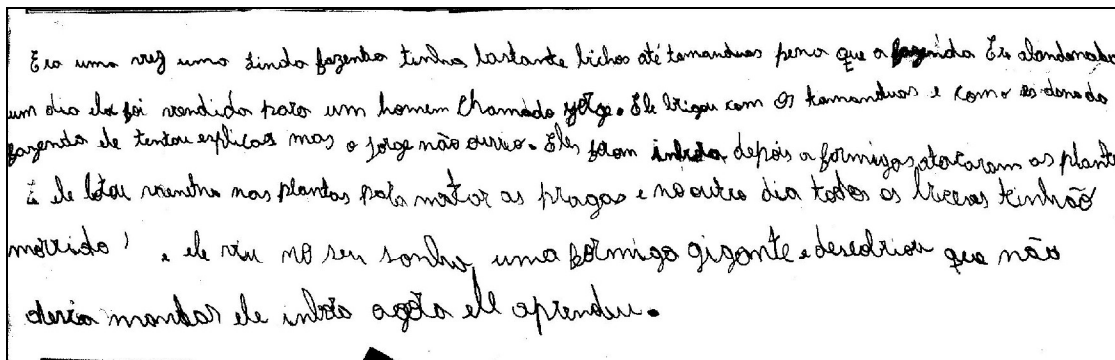 Era uma vez uma linda fazenba tinha bastante bichos até tamanduas pena que a fazenda Era abandonada
um dia ela foi vendida para um homem Chamado jorge. Ele brigou com os tamanduas e como es dono da
fazenda ele tentou explicar mas o jorge não ouviu. Eles foram depois a formigas atacaram as planta
E ele botou nas plantas para matar as pragas e no outro dia todos as tinhão
morrido , e ele viu no seu sonho uma formiga gigante e descobriou que não
devia mandar ele inbora agora ele aprendeu.